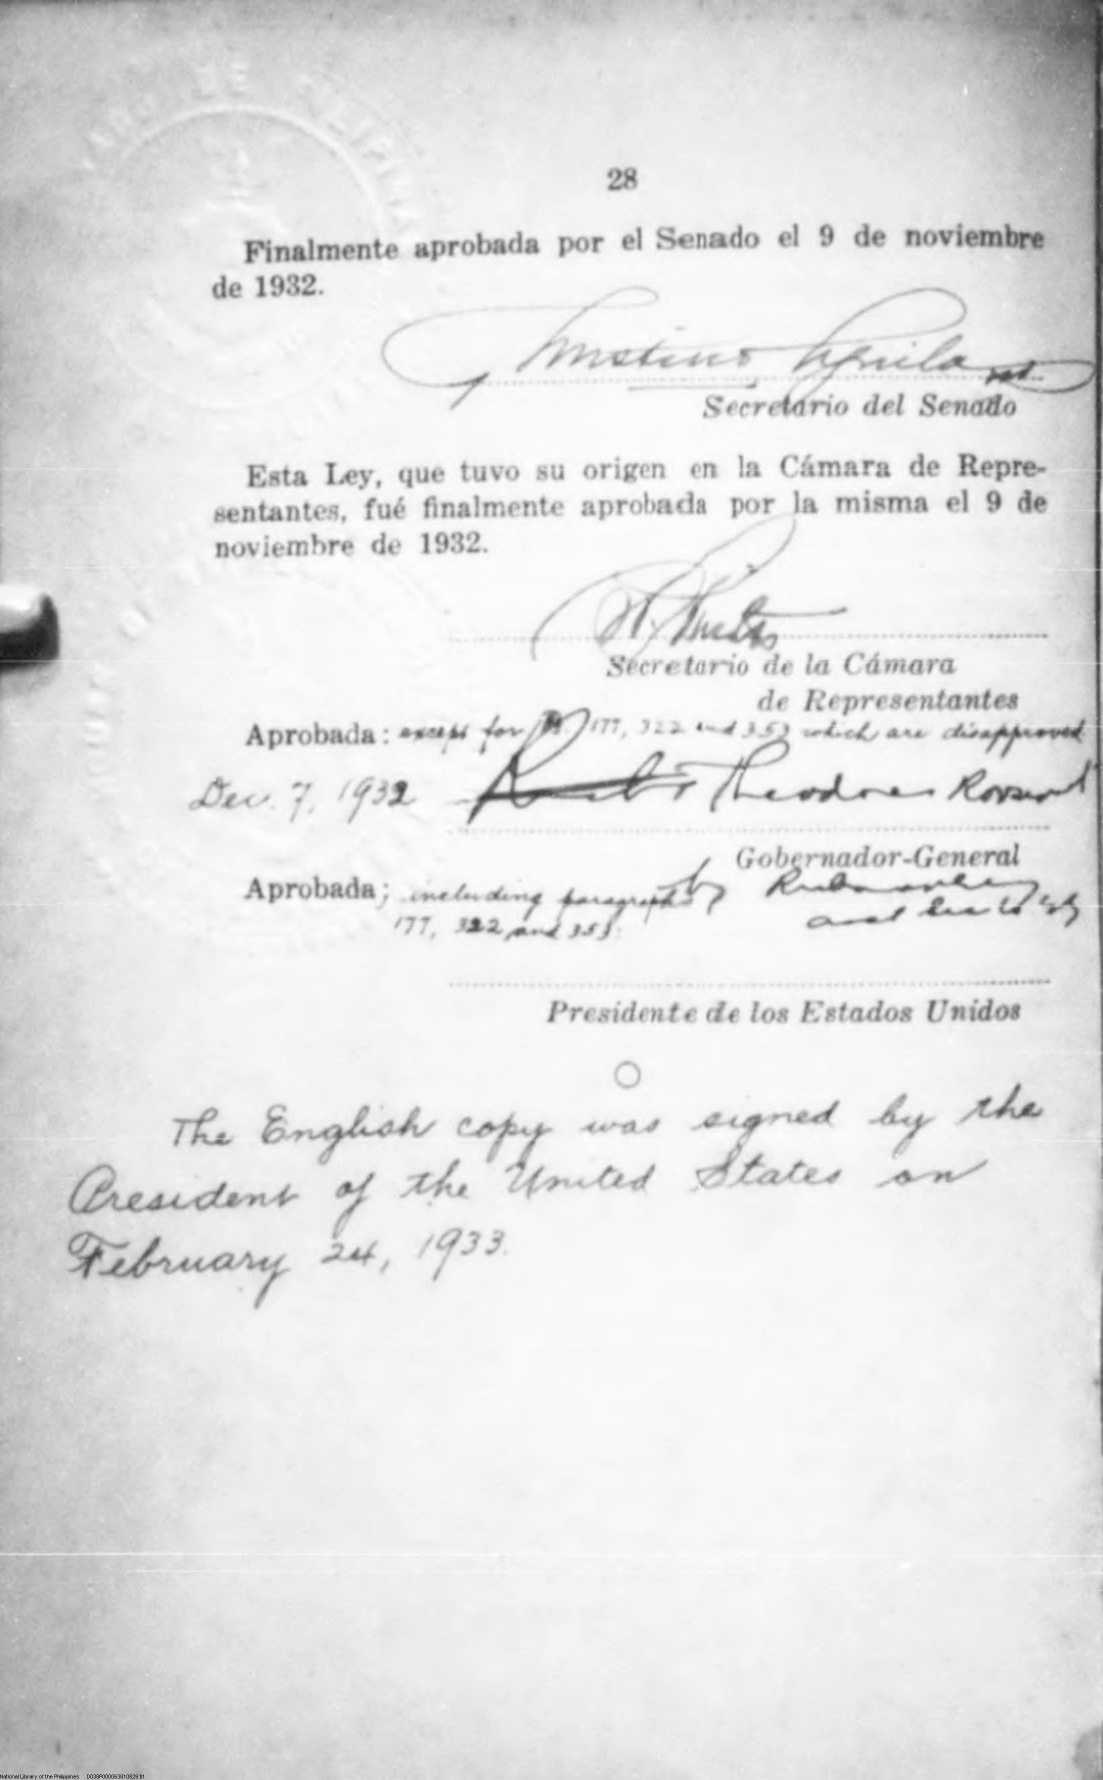 28
Finalmente aprobada por el Senado el 9 de noviembre
de 1932.
Secretario del Senado
Esta Ley, que tuvo su origen en la Cámara de Repre-
sentantes, fué finalmente aprobada por la misma el 9 de
noviembre de 1932.
Secretario de la Cámara
de Representantes
Aprobada: except for 177, 322 and 353 which are disapproved
Dec. 7, 1932 Theodore Roosevelt
Gobernador-General
Aprobada; including paragraphs
177, 322 and 353.
Presidente de los Estados Unidos
The English copy was signed by the
President of the United States on
February 24, 1933.
National Library of the Philippines